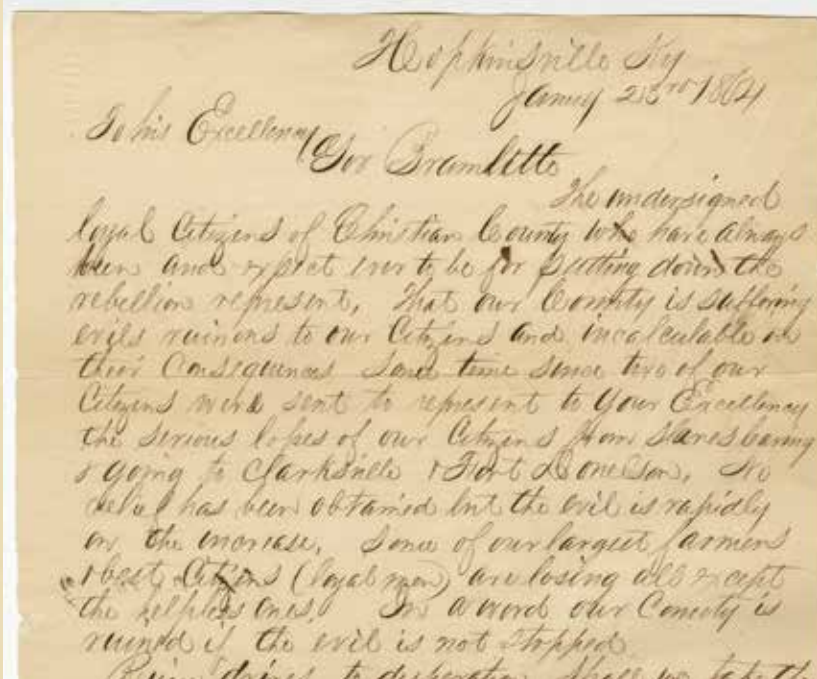 Hopkinsville Ky
Jany 23rd 1864
To his Excellency
Gov Bramlette
The undersigned
loyal Citizens of Christian County who have always
been and expect ever to be for putting down the
rebellion represent, that our County is suffering
evils ruinous to our Citizens and incalculable in
their Consequences Some time since two of our
Citizens were sent to represent to your Excellency
the serious losses of our Citizens from slaves leaving
& going to Clarksville & Fort Donelson, No
relief has been obtained but the evil is rapidly
on the increase, Some of our largest farmers
& best Citizens (loyal men) are losing all except
the helpless ones. In a word our County is
ruined if the evil is not stopped
Ruin drives to desperation Shall we take the